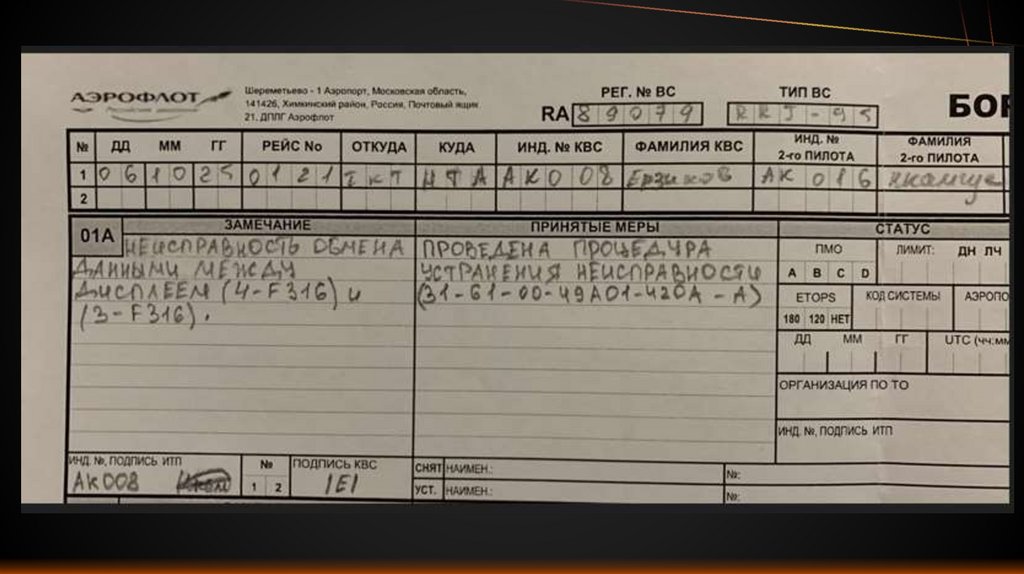 АЭРОФЛОТ
Шереметьево - 1 Аэропорт, Московская область,
141426, Химкинский район, Россия, Почтовый ящик
21, ДПЛГ Аэрофлот
РЕГ. № ВС
RA 89079
ТИП ВС
RRJ-95
БОР
№ ДД ММ ГГ РЕЙС No ОТКУДА КУДА ИНД. № КВС ФАМИЛИЯ КВС ИНД. № 2-го ПИЛОТА ФАМИЛИЯ 2-го ПИЛОТА
1 06 10 25 0121 IKT АК008 АК016
2
01А ЗАМЕЧАНИЕ
НЕИСПРАВНОСТЬ ОБМЕНА
ДАННЫМИ МЕЖДУ
ДИСПЛЕЕМ (4-F316) и
(3-F316).
ПРИНЯТЫЕ МЕРЫ
ПРОВЕДЕНА ПРОЦЕДУРА
УСТРАНЕНИЯ НЕИСПРАВНОСТИ
(31-61-00-49A01-420A-A)
СТАТУС
ПМО ЛИМИТ: ДН ЛЧ
A B C D
ETOPS КОД СИСТЕМЫ АЭРОПО
180 120 НЕТ
ДД ММ ГГ UTC (чч:мм
ОРГАНИЗАЦИЯ ПО ТО
ИНД. №, ПОДПИСЬ ИТП
ИНД. №, ПОДПИСЬ ИТП № ПОДПИСЬ КВС
АК008 1 2
СНЯТ НАИМЕН.: №:
УСТ. НАИМЕН.: №: